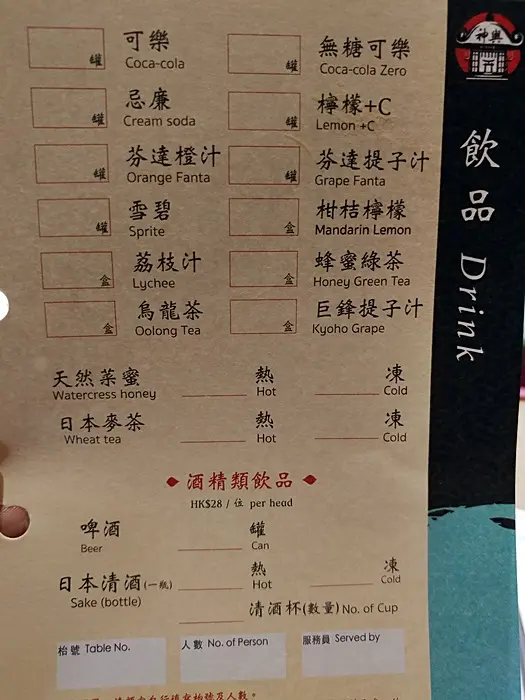 神輿
飲品 Drink
可樂
Coca-cola
罐
無糖可樂
Coca-cola Zero
罐
忌廉
Cream soda
罐
檸檬+C
Lemon +C
罐
芬達橙汁
Orange Fanta
罐
芬達提子汁
Grape Fanta
罐
雪碧
Sprite
罐
柑桔檸檬
Mandarin Lemon
盒
荔枝汁
Lychee
盒
蜂蜜綠茶
Honey Green Tea
盒
烏龍茶
Oolong Tea
盒
巨鋒提子汁
Kyoho Grape
盒
天然菜蜜 熱 凍
Watercress honey Hot Cold
日本麥茶 熱 凍
Wheat tea Hot Cold
酒精類飲品
HK$28 / 位 per head
啤酒 罐
Beer Can
日本清酒(一瓶) 熱 凍
Sake (bottle) Hot Cold
清酒杯(數量) No. of Cup
枱號 Table No.
人數 No. of Person
服務員 Served by
自行填寫枱號及人數。